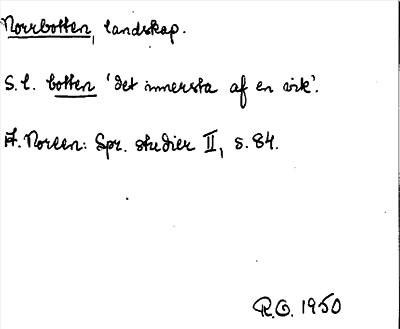 Norrbotten, landskap.
S.l. botten 'det innersta af en vik'.
A. Noreen: Spr. studier II, s. 84.
R.O. 1950